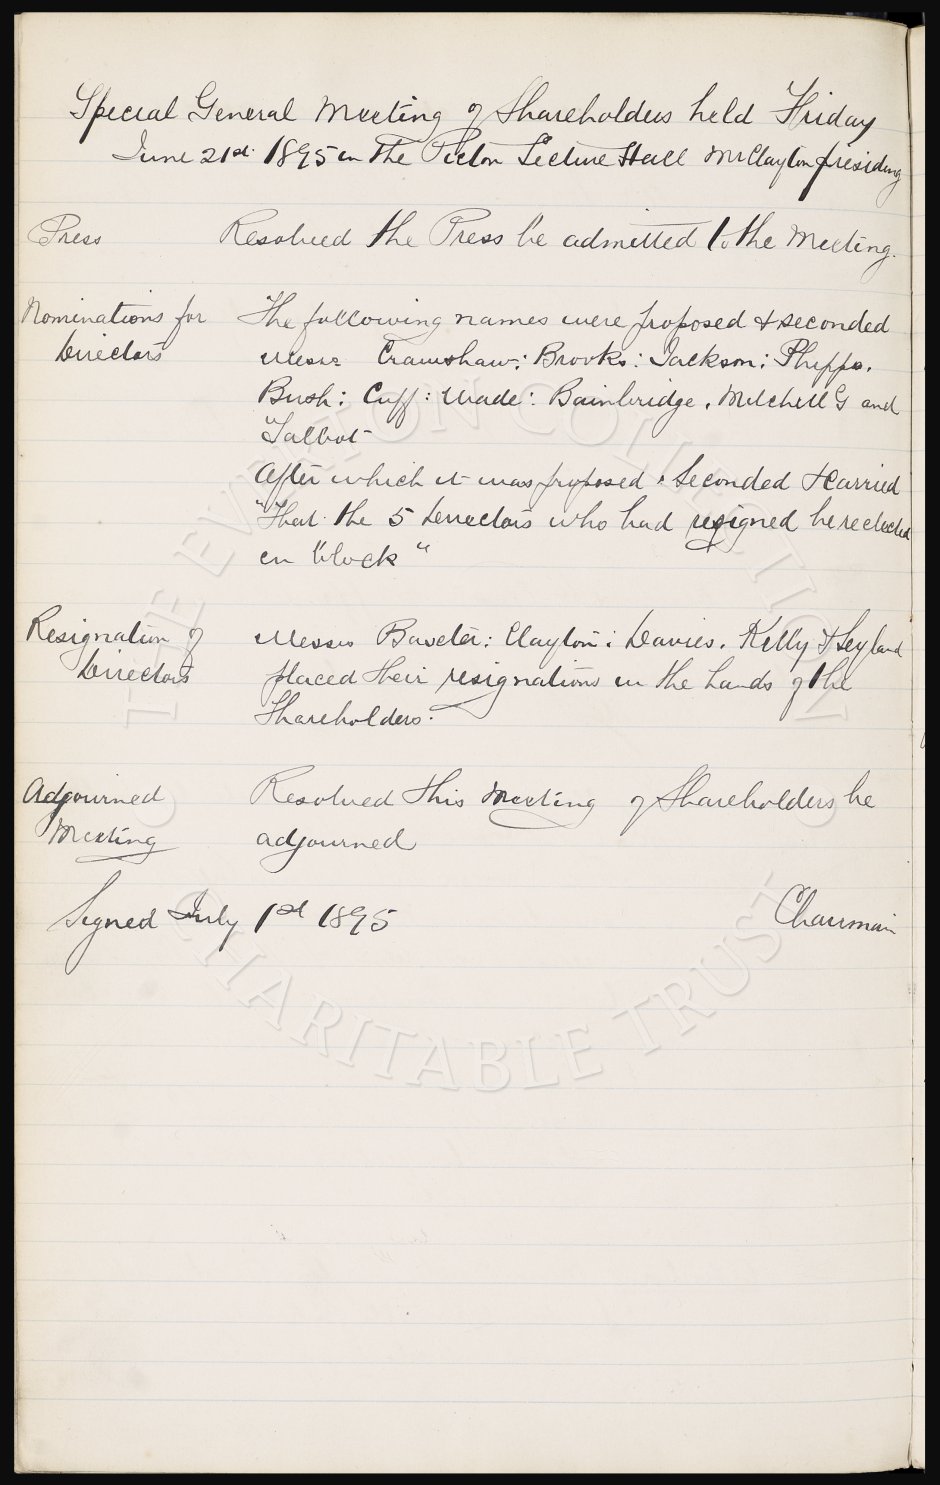 Special General Meeting of Shareholders held Friday
June 21st 1895 in the Picton Lecture Hall Mr Clayton presiding
Press Resolved the Press be admitted to the Meeting.
Nominations for The following names were proposed & seconded
Directors Messrs Cramshaw: Brooks: Jackson: Phipps.
Bush: Cuff: Wade: Bainbridge. Mitchell G and
Talbot
After which it was proposed. Seconded & Carried
"That the 5 Directors who had resigned be reelected
en "block"
Resignation of Messrs Baxter: Clayton: Davies. Kelly & Leyland
Directors placed their resignations in the hands of the
Shareholders.
Adjourned Resolved this Meeting of Shareholders be
Meeting adjourned
Signed July 1st 1895 Chairman
THE EVERTON COLLECTION
CHARITABLE TRUST